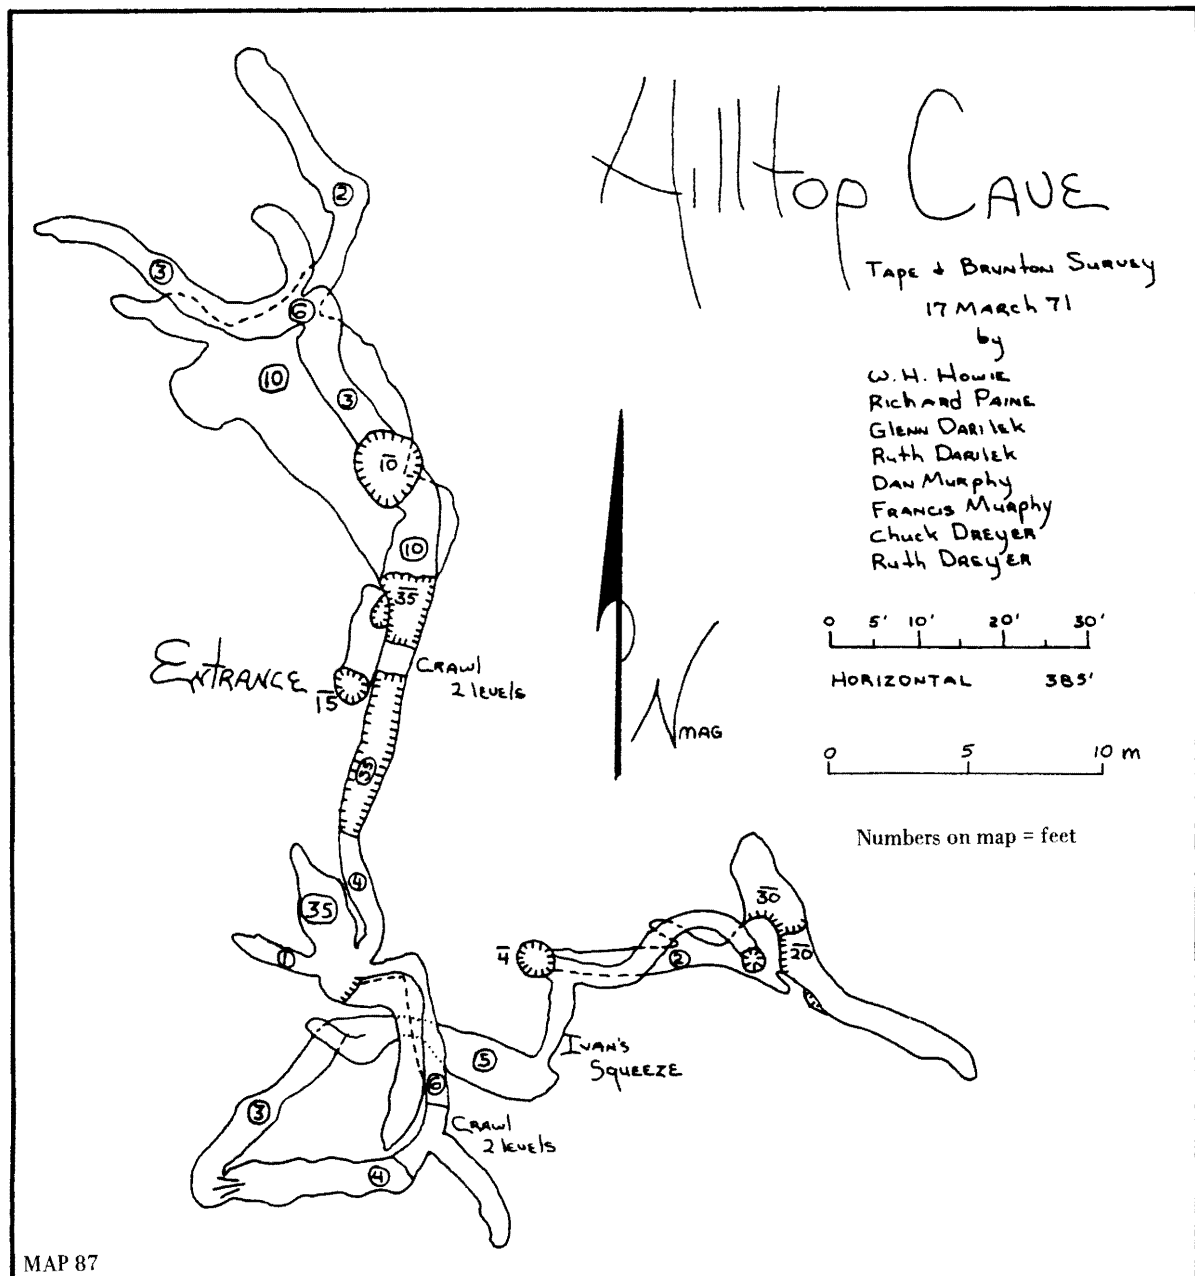 Hilltop CAVE
TAPE & BRUNTON SURVEY
17 MARCH 71
by
W. H. HOWIE
RichARd PAINE
GLENN DARILEK
RUTH DARILEK
DAN MURPHY
FRANCIS MURPHY
Chuck DREYER
Ruth DREYER
0 5' 10' 20' 30'
HORIZONTAL 385'
0 5 10 m
Numbers on map = feet
N MAG
2
3
6
10
3
10
10
35
ENTRANCE
15
CRAWL
2 levels
35
4
35
1
4
2
30
20
IVAN'S
SQUEEZE
5
6
3
CRAWL
2 levels
4
MAP 87